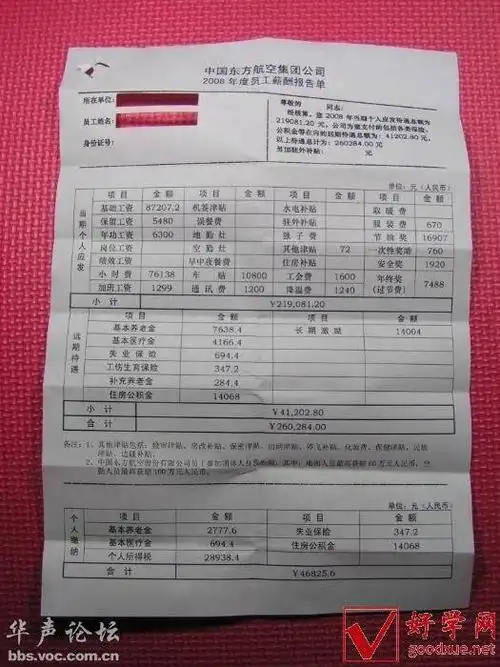 中国东方航空集团公司
2008年度员工薪酬报告单
所在单位:
员工姓名:
身份证号:
尊敬的 同志:
经核算,您2008年当期个人应发待遇总额为
219081.20元,公司为您支付的包括各类保险、
公积金等在内的远期待遇总额为:41202.80元,
以上待遇总计为:260284.00元
另加驻外补贴: 元
单位:元(人民币)
当期个人应发
项目 金额 项目 金额 项目 金额 项目 金额
基础工资 87207.2 机签津贴 水电补贴 取暖费
保留工资 5480 误餐费 驻外补贴 服装费 670
年功工资 6300 地勤灶 独子费 节油奖 16907
岗位工资 空勤灶 其他津贴 72 一次性奖励 760
绩效工资 早中夜餐费 住房补贴 安全奖 1920
小时费 76138 车贴 10800 工会费 1600 年终奖(过节费) 7488
加班工资 1299 通讯费 1200 降温费 1240
小计 ¥219,081.20
远期待遇
项目 金额 项目 金额
基本养老金 7638.4 长期激励 14004
基本医疗金 4166.4
失业保险 694.4
工伤生育保险 347.2
补充养老金 284.4
住房公积金 14068
小计 ¥41,202.80
合计 ¥260,284.00
备注:1、其他津贴包括:
津贴、边疆补贴。
2、中国东方航空股份有限公司员工参加团体人身保险
勤人员最高获赔100万元人民币。
单位:元(人民币)
个人缴纳
项目 金额 项目 金额
基本养老金 2777.6 失业保险 347.2
基本医疗金 694.4 住房公积金 14068
个人所得税 28938.4
合计 ¥46825.6
华声论坛
bbs.voc.com.cn
好学网
goodxue.net